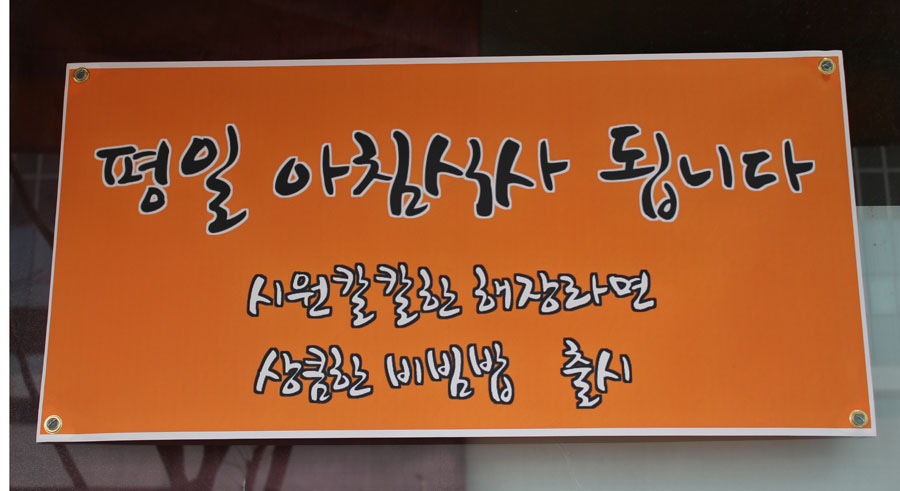 평일 아침식사 됩니다
시원칼칼한 해장라면
상큼한 비빔밥 출시